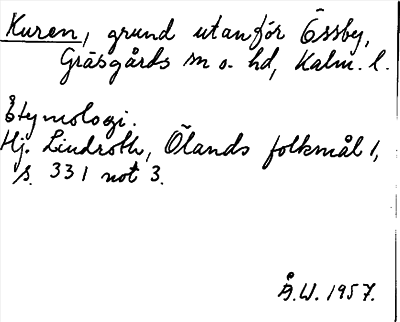 Kuren, grund utanför Össby,
Gräsgårds sn o. hd, Kalm. l.
Etymologi.
Hj. Lindroth, Ölands folkmål 1,
s. 331 not 3.
Å.W. 1957.